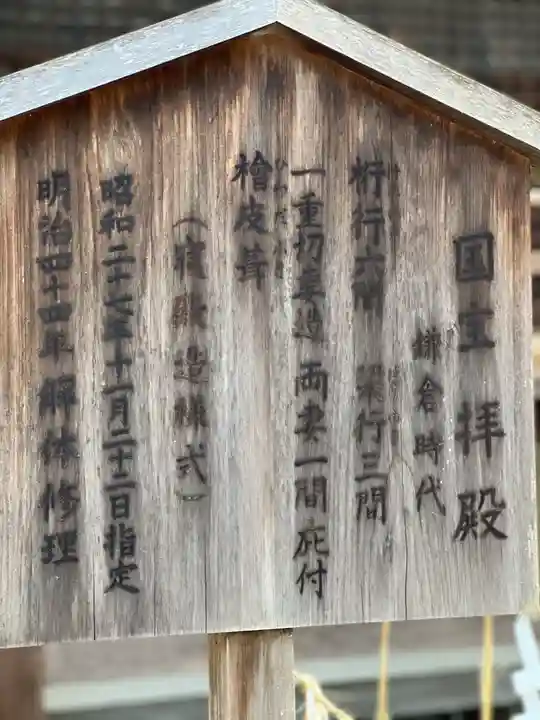 国宝拝殿
鎌倉時代
桁行六間 梁行三間
一重切妻造 両妻一間庇付
檜皮葺
(寝殿造様式)
昭和二十七年十一月二十二日指定
明治四十四年解体修理